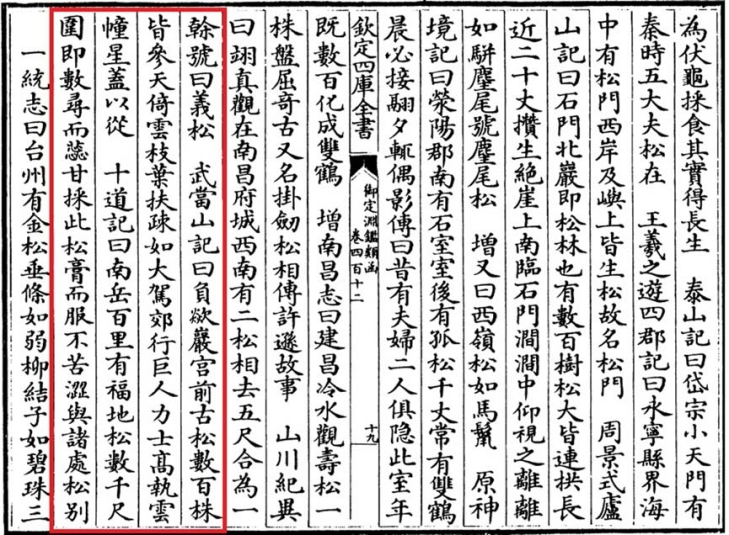 為伏龜採食其實得長生 泰山記曰岱宗小天門有
秦時五大夫松在 王羲之遊四郡記曰永寧縣界海
中有松門西岸及嶼上皆生松故名松門 周景式廬
山記曰石門北巖即松林也有數百樹松大皆連拱長
近二十丈攢生絶崖上南臨石門澗澗中仰視之離離
如駢麈尾號麈尾松 增又曰西嶺松如馬鬛 原神
境記曰滎陽郡南有石室室後有孤松千丈常有雙鶴
晨必接翮夕輒偶影傳曰昔有夫婦二人俱隱此室年
欽定四庫全書
御定淵鑑類函
卷四百十二
十九
既數百化成雙鶴 增南昌志曰建昌冷水觀壽松一
株盤屈奇古又名掛劒松相傳許遜故事 山川紀異
曰翊真觀在南昌府城西南有二松相去五尺合為一
榦號曰義松 武當山記曰負歘巖宫前古松數百株
皆參天倚雲枝葉扶疎如大駕郊行巨人力士髙執雲
幢星蓋以從 十道記曰南岳百里有福地松數千尺
圍即數尋而蘂甘採此松膏而服不苦澀與諸處松別
一統志曰台州有金松垂條如弱柳結子如碧珠三